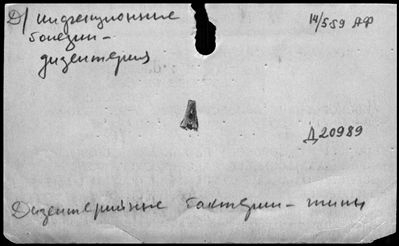 Д/ инфекционные 14/559 АФ
болезни -
дизентерия
Д20989
Дизентерийные бактерии - типы